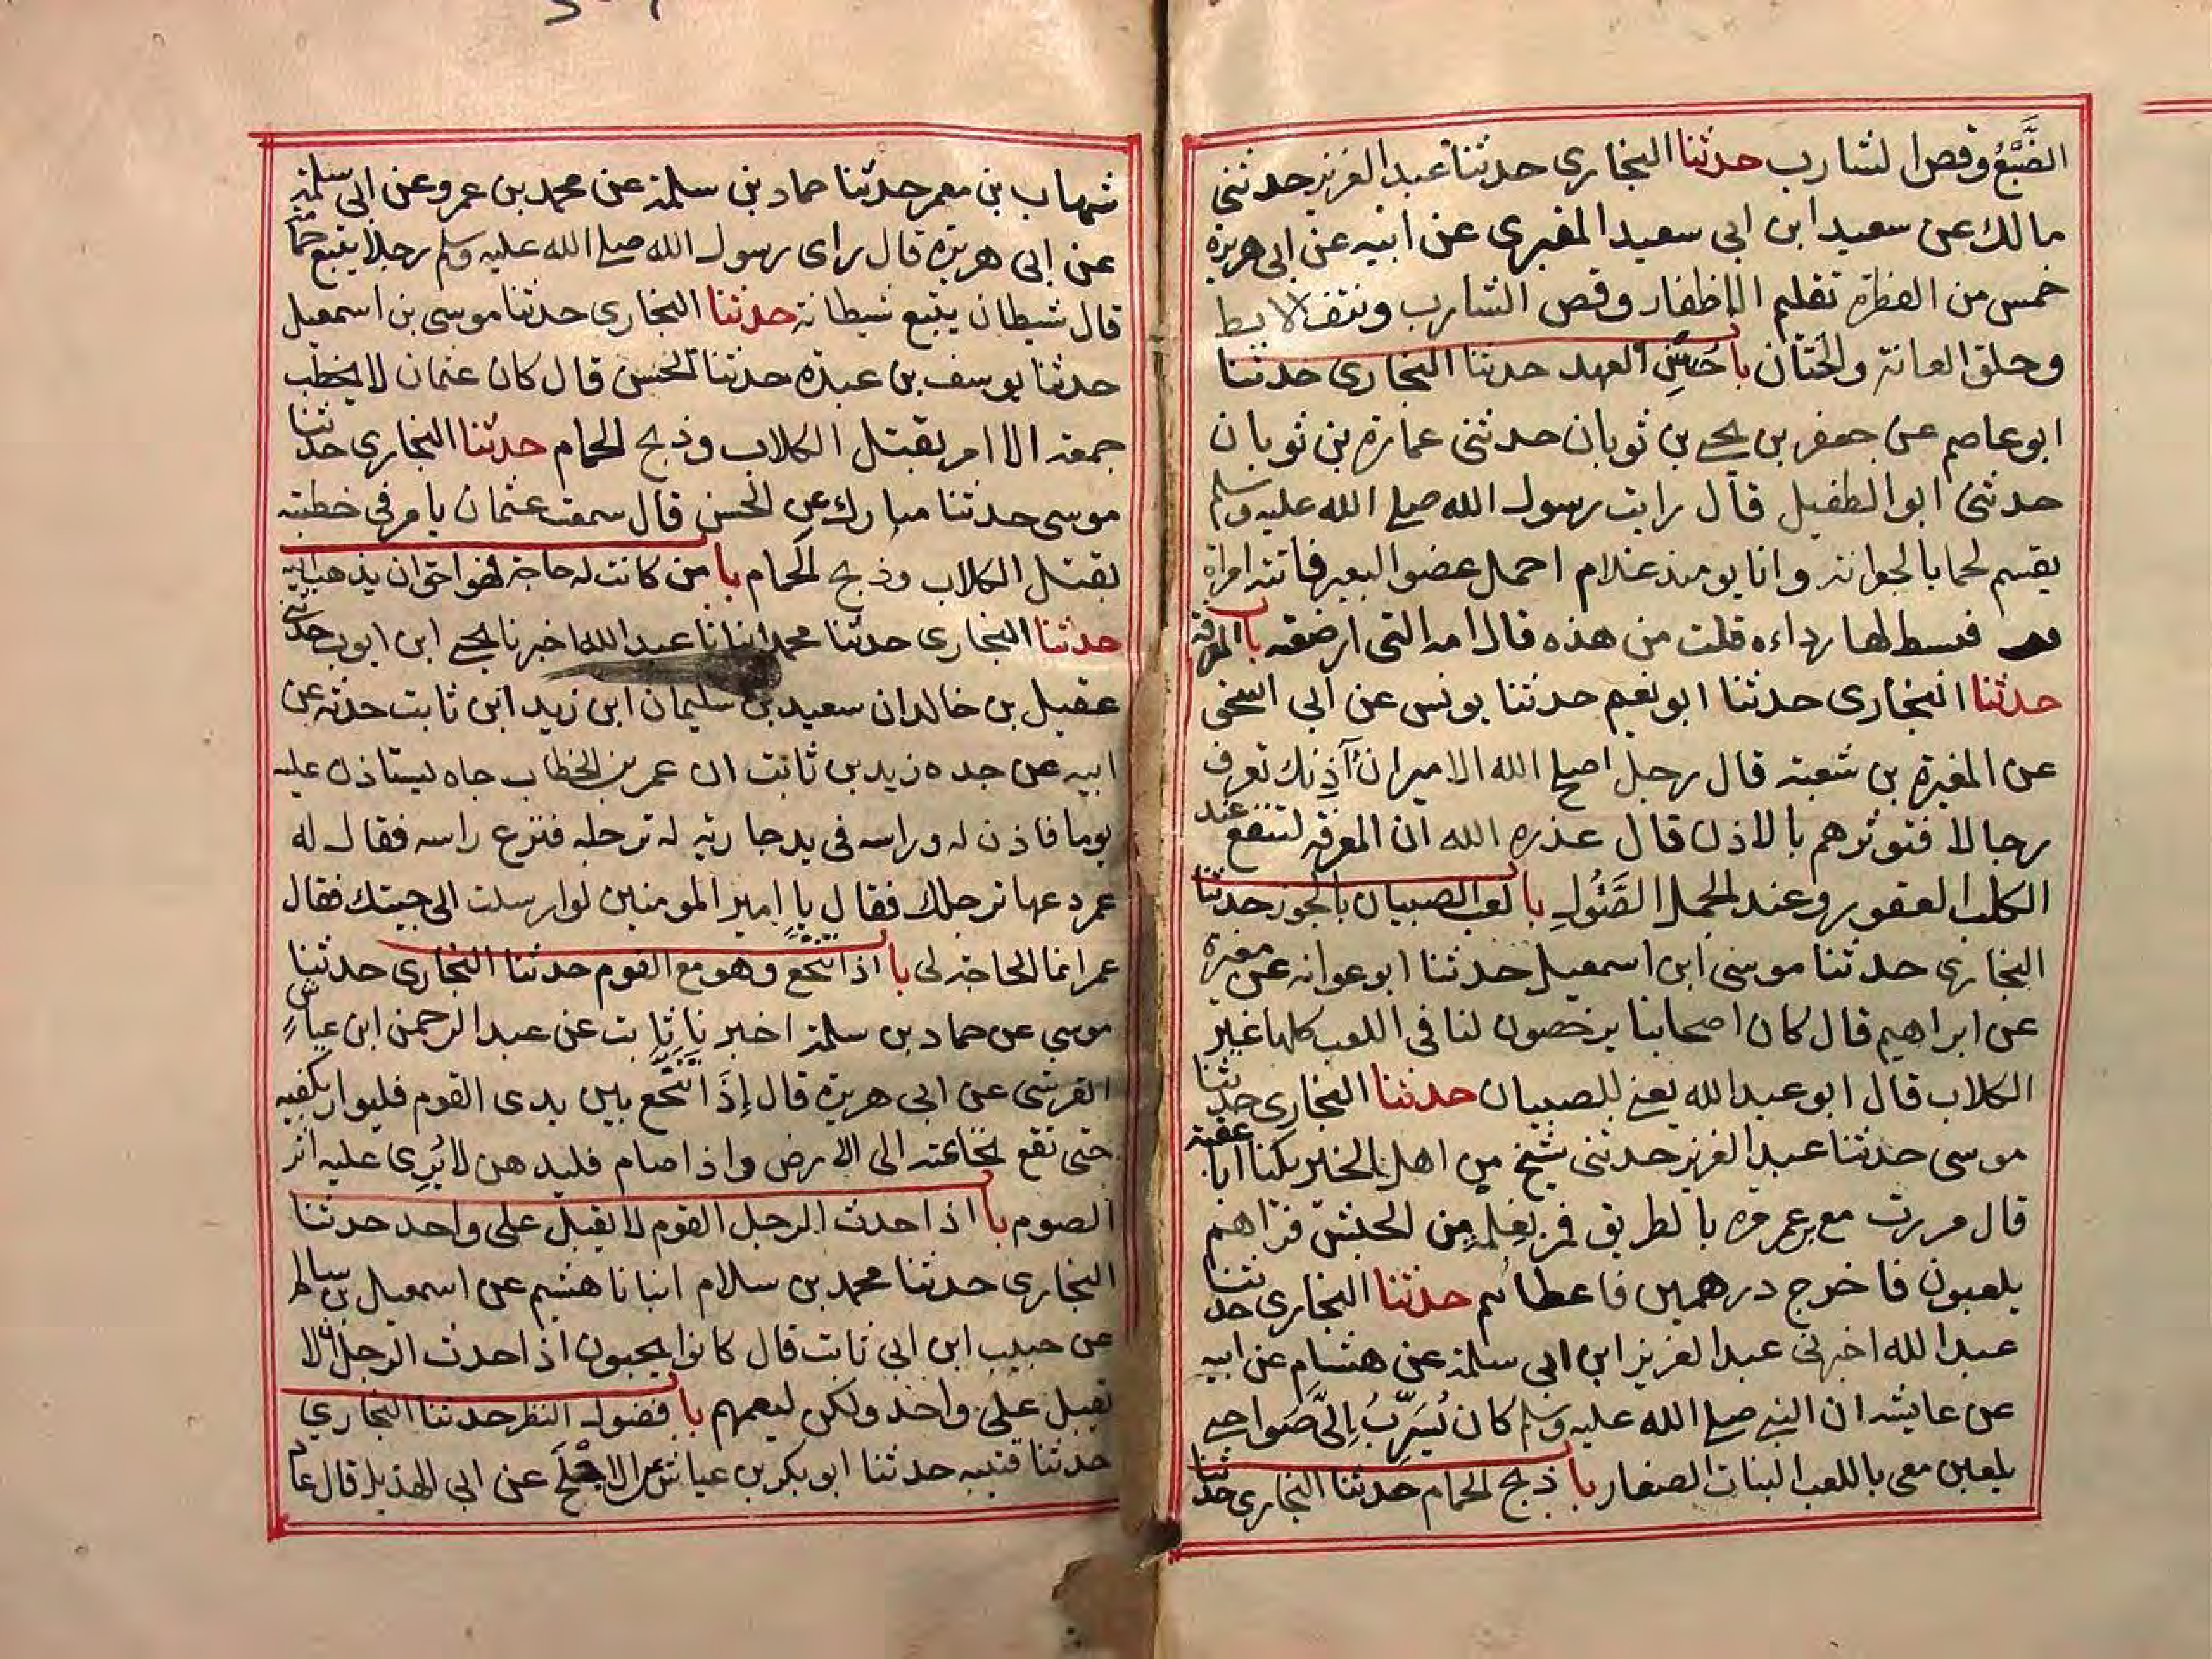 الضَّبْعُ وقص الشارب حدثنا البخارى حدثنا عبد العزيز حدثنى
مالك عن سعيد ابن ابى سعيد المقبرى عن ابيه عن ابى هريرة
خمس من الفطرة تقليم الاظفار وقص الشارب ونتف الابط
وحلق العانة والختان باب حُسْنِ العهد حدثنا البخارى حدثنا
ابو عاصم عن جعفر بن يحيى بن ثوبان حدثنى عمارة بن ثوبان
حدثنى ابو الطفيل قال رايت رسول الله صلى الله عليه وسلم
يقسم لحما بالجعرانة وانا يومئذ غلام احمل عضو البعير فاتته امراة
فبسط لها رداءه قلت من هذه قال امه التى ارضعته باب المعرفة
حدثنا البخارى حدثنا ابو نعيم حدثنا يونس عن ابى اسحق
عن المغيرة بن شعبة قال رجل اصلح الله الامير ان آذنك تعرف
رجالا فتوثرهم بالاذن قال عذره الله ان المعرفة لتنفع عند
الكلب العقور وعند الجمل الصَّئُولِ باب لعب الصبيان بالجوز حدثنا
البخارى حدثنا موسى ابن اسمعيل حدثنا ابو عوانه عن مغيرة
عن ابراهيم قال كان اصحابنا يرخصون لنا فى اللعب كلها غير
الكلاب قال ابو عبد الله يعنى للصبيان حدثنا البخارى حدثنا
موسى حدثنا عبد العزيز حدثنى شيخ من اهل الخير يكنا ابا عقبة
قال مررت مع بن عمر مرة بالطريق فمر بغلمة من الحبش فراهم
يلعبون فاخرج درهمين فاعطاهم حدثنا البخارى حدثنا
عبد الله اخبرنى عبد العزيز ابن ابى سلمة عن هشام عن ابيه
عن عايشه ان النبى صلى الله عليه وسلم كان يُسَرِّبُ اِلىَّ صواحبى
يلعبن معى باللعب البنات الصغار باب ذبح الحمام حدثنا البخارى حدثنا
شهاب بن معمر حدثنا حماد بن سلمة عن محمد بن عمرو عن ابى سلمة
عن ابى هريرة قال راى رسول الله صلى الله عليه وسلم رجلا يتبع حمامة
قال شيطان يتبع شيطانة حدثنا البخارى حدثنا موسى بن اسمعيل
حدثنا يوسف بن عبدة حدثنا الحسن قال كان عثمان لا يخطب
جمعة الا امر بقتل الكلاب وذبح الحمام حدثنا البخارى حدثنا
موسى حدثنا مبارك عن الحسن قال سمعت عثمان يامر فى خطبته
بقتل الكلاب وذبح الحمام باب من كانت له حاجة فهو احق ان يذهب اليه
حدثنا البخارى حدثنا محمد انبانا عبد الله اخبرنا يحيى ابن ايوب حدثنى
عقيل بن خالد ان سعيد بن سليمان ابن زيد ابن ثابت حدثه عن
ابيه عن جده زيد بن ثابت ان عمر بن الخطاب جاه يستاذن عليه
يوما فاذن له وراسه فى يد جارية له ترجله فنزع راسه فقال له
عمر دعها ترجلك فقال يا امير المومنين لو ارسلت الى جيتك فقال
عمر انما الحاجة لى باب اذا تنخع وهو مع القوم حدثنا البخارى حدثنا
موسى عن حماد بن سلمة اخبرنا ثابت عن عبد الرحمن ابن عياش
القرشى عن ابى هريرة قال إذَا تَنَخَّع بين يدى القوم فليوار بكفيه
حتى تقع نخاعته الى الارض واذا صام فليدهن لا يُرى عليه اثر
الصوم باب اذا حدث الرجل القوم لا يقبل على واحد حدثنا
البخارى حدثنا محمد بن سلام انبانا هشيم عن اسمعيل بن سالم
عن حبيب ابن ابى ثابت قال كانوا يحبون اذا حدث الرجل ان لا
يقبل على واحد ولكن ليعمهم باب فضول النظر حدثنا البخارى
حدثنا قتيبه حدثنا ابو بكر بن عياش عن الاجلح عن ابى الهذيل قال عاد